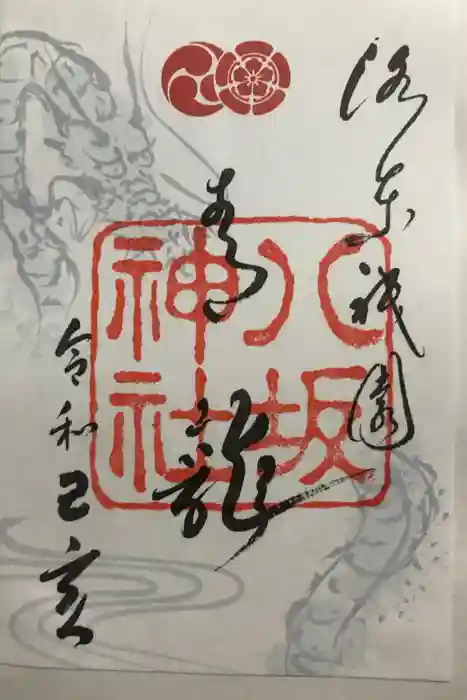 洛東祇園
青龍
八坂
神社
令和己亥